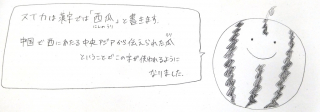 スイカは漢字では「西瓜」と書きます
にしのうり
中国で西にあたる中央アジアから伝えられた瓜
うり
ということからこの字が使われるように
なりました。